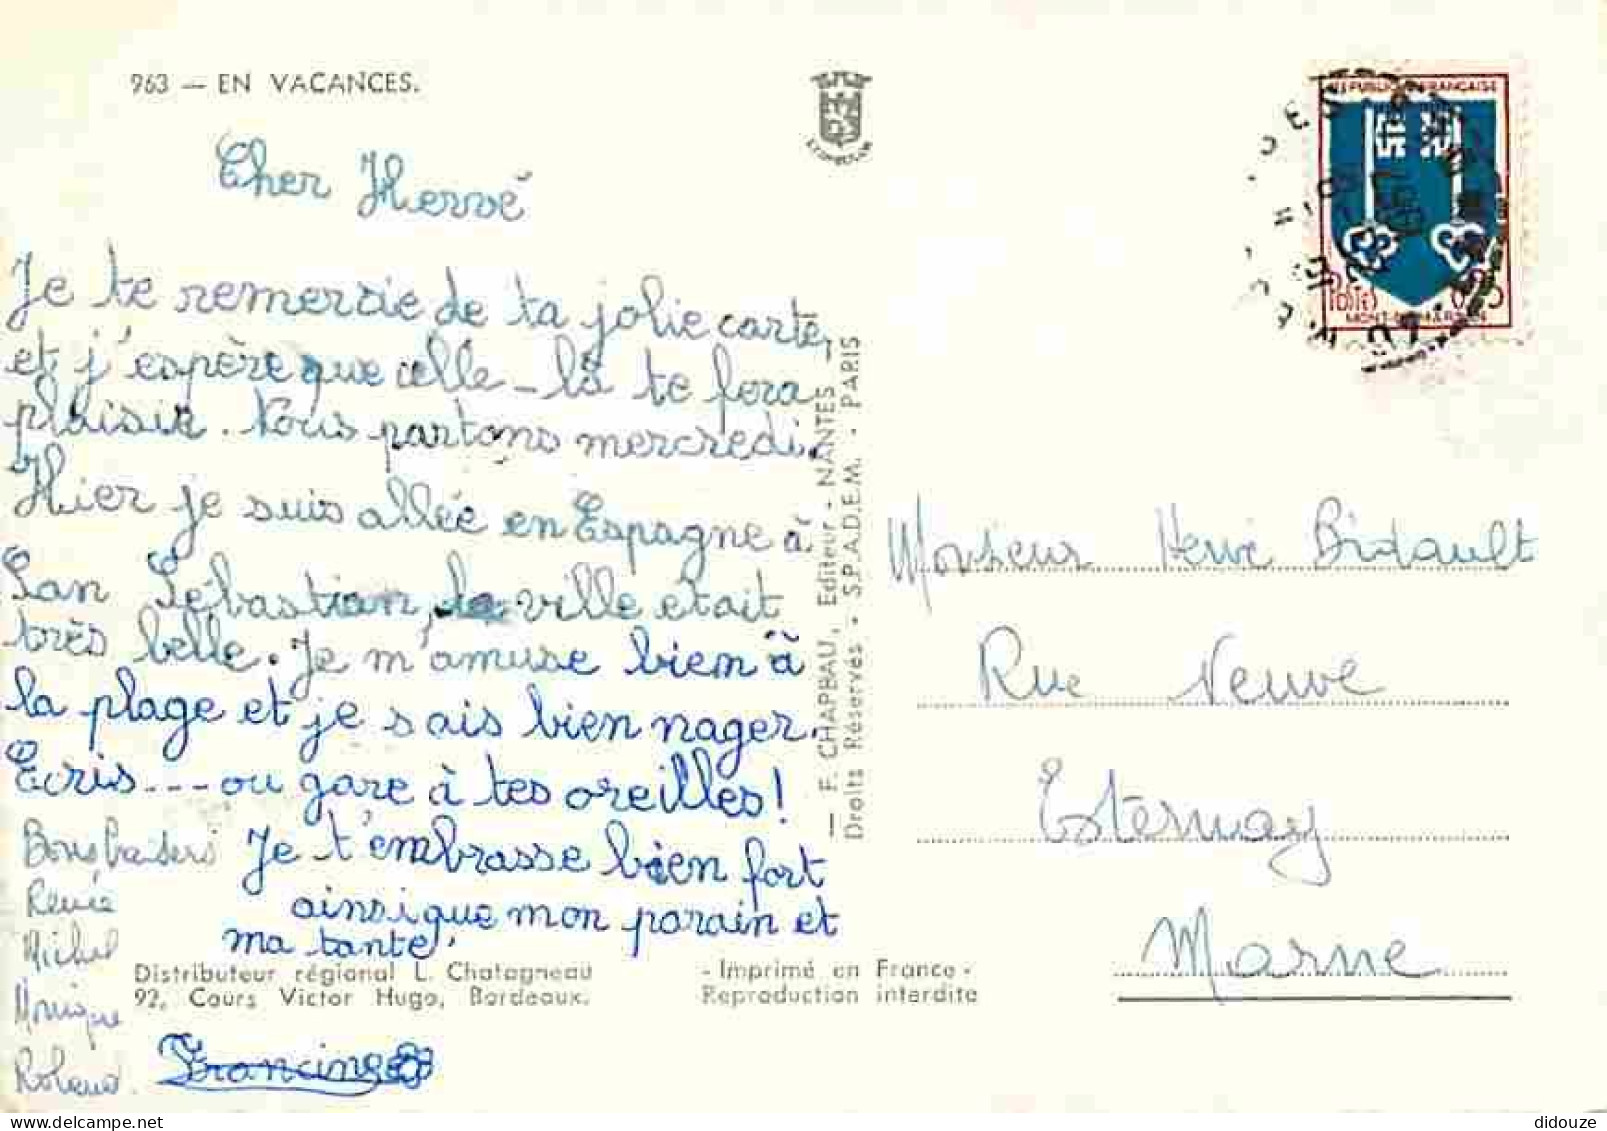 963 — EN VACANCES.
Cher Hervé
Je te remercie de ta jolie carte,
et j'espère que celle-là te fera
plaisir. Nous partons mercredi.
Hier je suis allée en Espagne à
San Sébastian, la ville etait
très belle. Je m'amuse bien à
la plage et je sais bien nager.
Écris --- ou gare à tes oreilles!
Je t'embrasse bien fort
ainsi que mon parain et
ma tante.
Bons baisers
Renée
Michel
Monique
Roland.
Francine
Distributeur régional L. Chatagneau
92, Cours Victor Hugo, Bordeaux.
- Imprimé en France -
Reproduction interdite
— F. CHAPBAU, Editeur - NANTES —
Droits Réservés - S.P.A.D.E.M. - PARIS
REPUBLIQUE FRANÇAISE
MONT-DE-MARSAN
Monsieur Hervé Bidault
Rue Neuve
Esternay
Marne
didouze